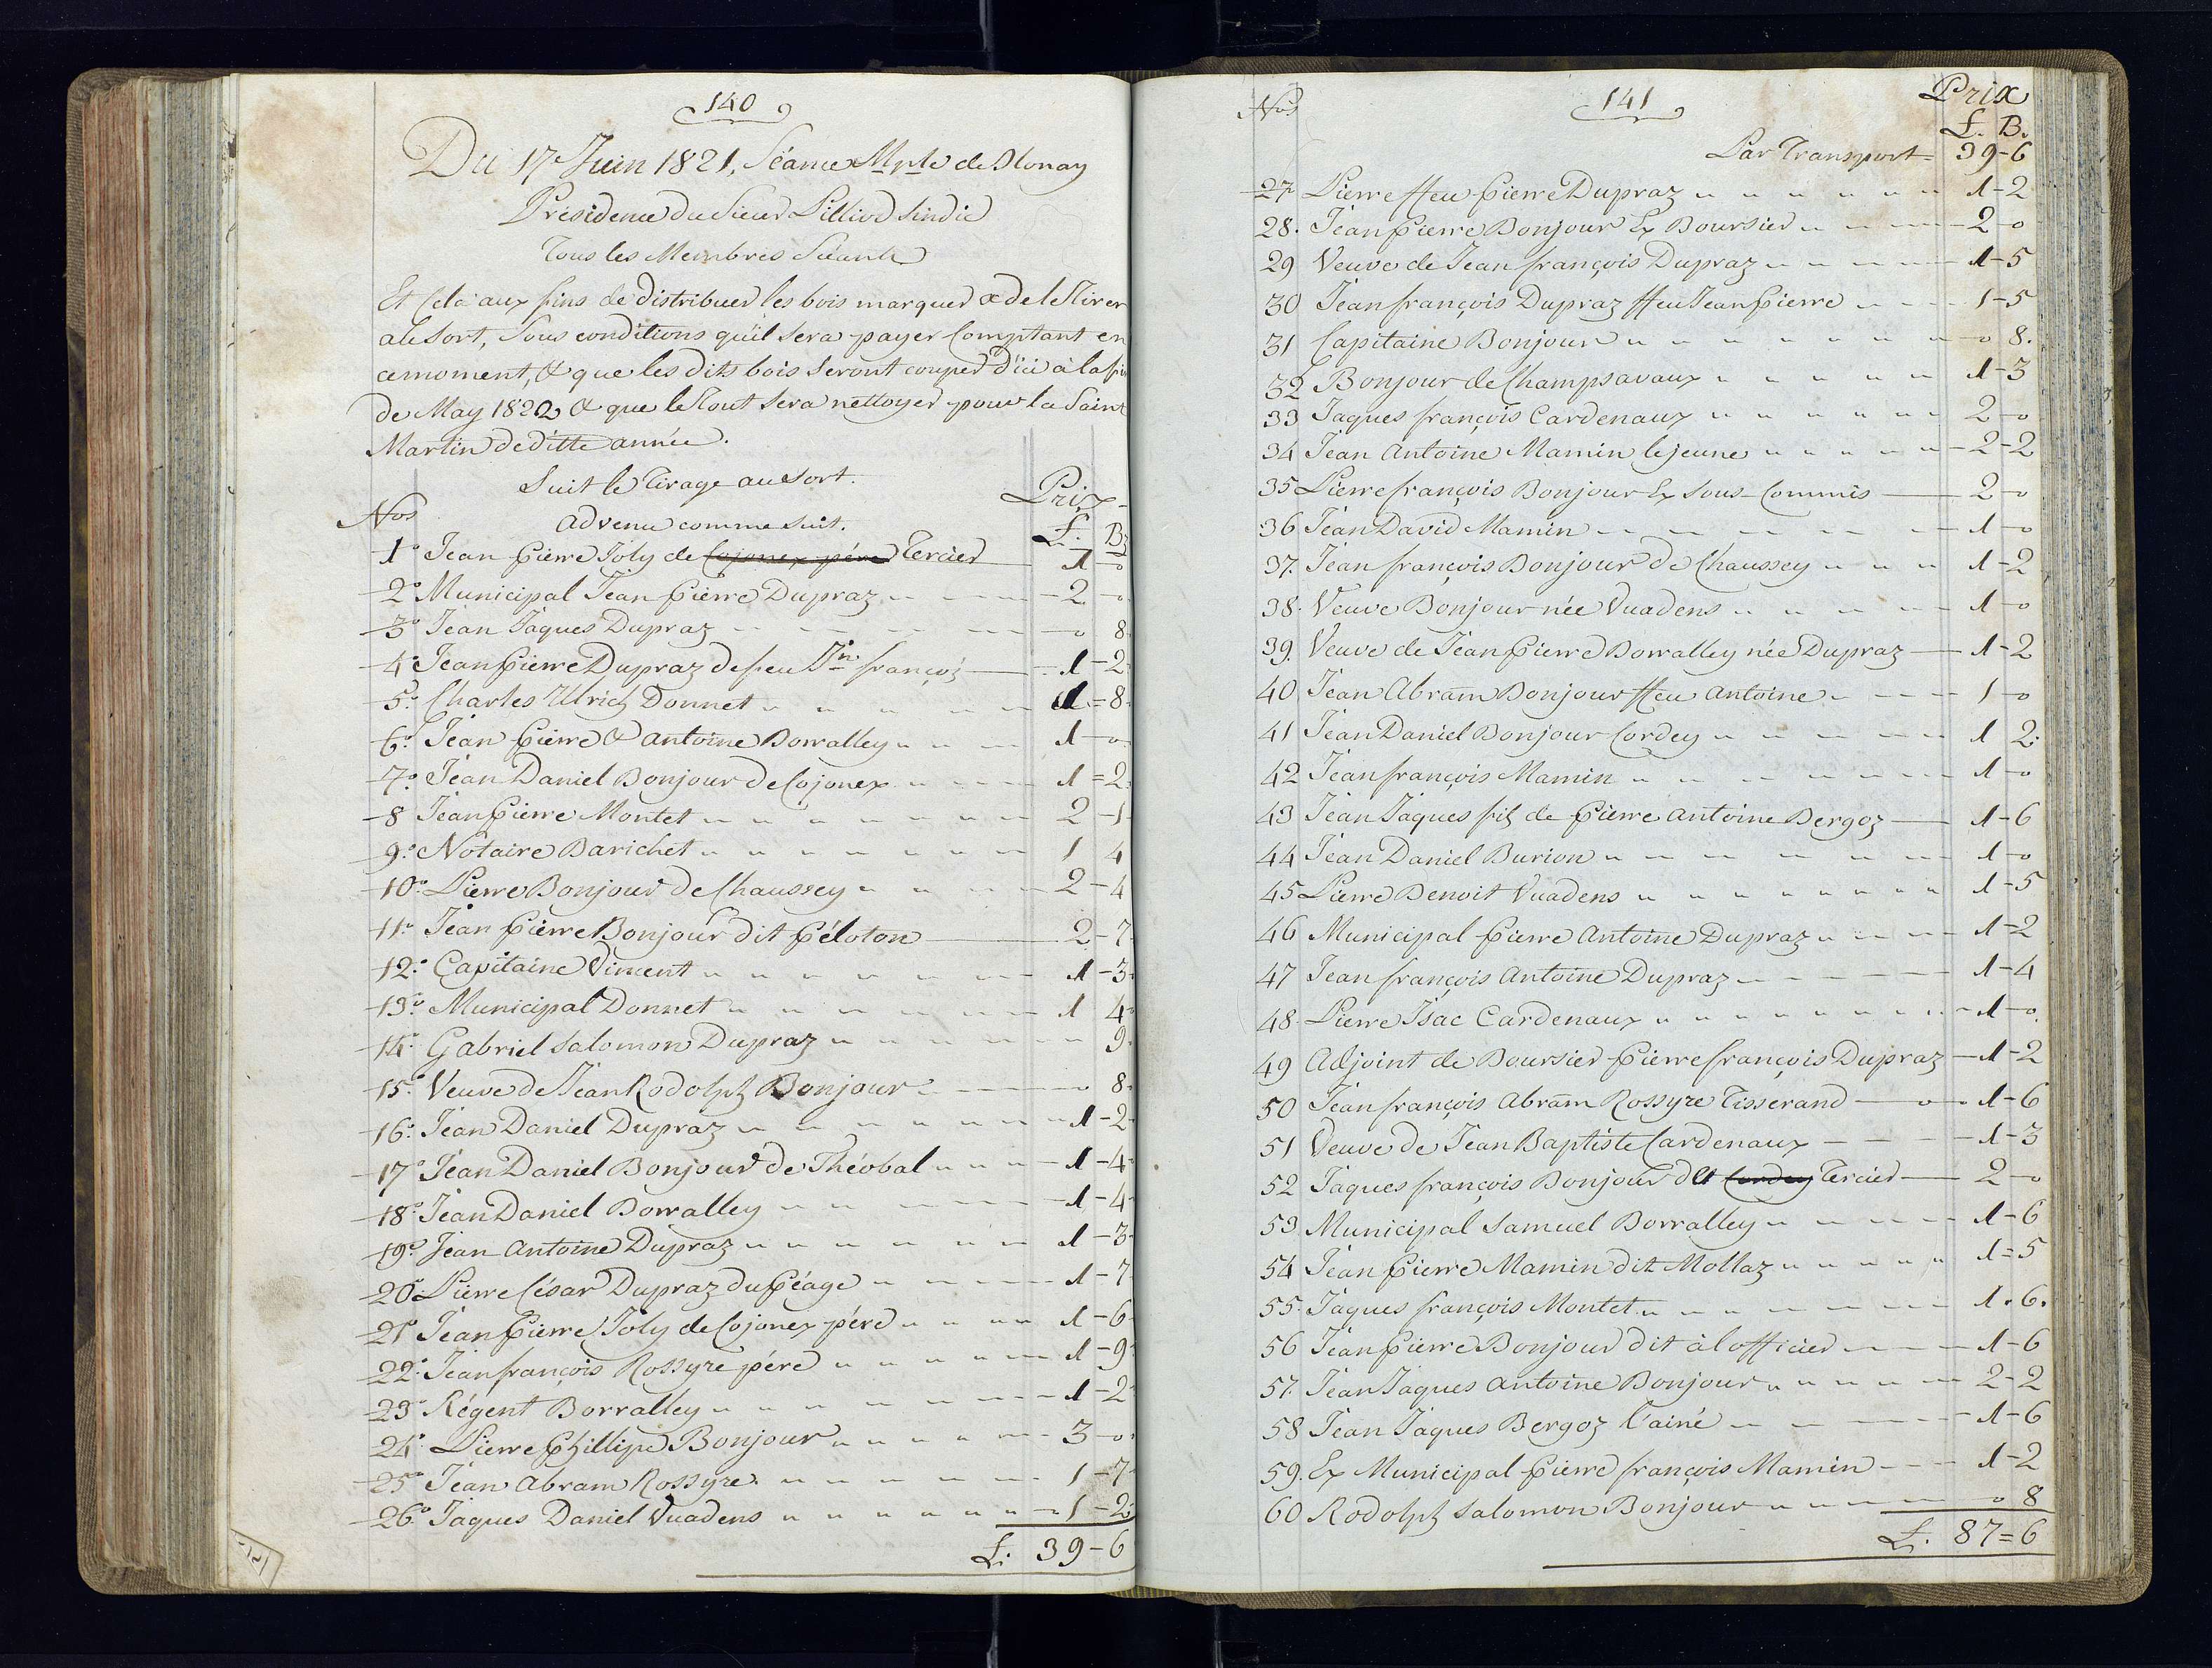 140
Du 17 Juin 1821, Séance Mple de Blonay
Présidence du Sieur Pilliod Sindic
Tous les Membres Séants
Et Cela aux fins de distribuer les bois marquer & de les tirer
au sort, Sous conditions quil sera payer Comptant en
ce moment, & que les dits bois seront couper d'ici à la fin
de May 1822 & que le tout sera nettoyer pour la Saint
Martin de ditte année.
Suit le tirage au sort.
Nos advenu comme suit. Prix
L. Bz
1° Jean Pierre Joly de Cojonex père Tercier 1 - 0
2° Municipal Jean Pierre Dupraz 2 - 0
3° Jean Jaques Dupraz 0 8
4° Jean Pierre Dupraz de feu Jn françois 1 - 2
5° Charles Ulrich Donnet 1 = 8
6° Jean Pierre & antoine Borralley 1 - 0
7° Jean Daniel Bonjour de Cojonex 1 = 2
8 Jean Pierre Montet 2 - 1
9° Notaire Barichet 1 4
10° Pierre Bonjour de Chaussey 2 - 4
11° Jean Pierre Bonjour dit Péloton 2 - 7
12° Capitaine Viment 1 - 3
13° Municipal Donnet 1 4
14° Gabriel Salomon Dupraz 9
15° Veuve de Jean Rodolph Bonjour 0 8
16° Jean Daniel Dupraz 1 - 2
17° Jean Daniel Bonjour de Théobal 1 - 4
18° Jean Daniel Borralley 1 - 4
19° Jean Antoine Dupraz 1 - 3
20° Pierre César Dupraz du Péage 1 - 7
21° Jean Pierre Joly de Cojonex père 1 - 6
22° Jean françois Rossyre père 1 - 9
23° Régent Borralley 1 - 2
24° Pierre Phillipe Bonjour 3 - 0
25° Jean Abram Rossyre 1 - 7
26° Jaques Daniel Vuadens 1 - 2
L. 39 - 6
Nos 141 Prix
L. B.
Par Transport = 39 - 6
27 Pierre ffeu Pierre Dupraz 1 - 2
28. Jean Pierre Bonjour Ex Boursier 2 - 0
29 Veuve de Jean françois Dupraz 1 - 5
30 Jean françois Dupraz ffeu Jean Pierre 1 - 5
31 Capitaine Bonjour 0 8.
32 Bonjour de Champsavaux 1 - 3
33 Jaques françois Cardenaux 2 - 0
34 Jean Antoine Mamin le jeune 2 - 2
35 Pierre françois Bonjour Ex Sous-Commis 2 - 0
36 Jean David Mamin 1 - 0
37. Jean françois Bonjour de Chaussey 1 - 2
38. Veuve Bonjour née Vuadens 1 - 0
39. Veuve de Jean Pierre Borralley née Dupraz 1 - 2
40 Jean Abram Bonjour ffeu Antoine 1 - 0
41 Jean Daniel Bonjour Cordey 1 2.
42 Jean françois Mamin 1 - 0
43 Jean Jaques fils de Pierre Antoine Bergoz 1 - 6
44 Jean Daniel Burion 1 - 0
45 Pierre Benoit Vuadens 1 - 5
46 Municipal Pierre Antoine Dupraz 1 - 2
47 Jean françois Antoine Dupraz 1 - 4
48. Pierre Isac Cardenaux 1 - 0
49 Adjoint de Boursier Pierre françois Dupraz 1 - 2
50 Jean françois Abram Rossyre Tisserand 1 - 6
51 Veuve de Jean Baptiste Cardenaux 1 - 3
52 Jaques françois Bonjour dlt Cordey Tercier 2 - 0
53 Municipal Samuel Borralley 1 - 6
54 Jean Pierre Mamin dit Mollaz 1 = 5
55. Jaques françois Montet 1 . 6.
56 Jean Pierre Bonjour dit à l'officier 1 - 6
57. Jean Jaques Antoine Bonjour 2 - 2
58 Jean Jaques Bergoz l'ainé 1 - 6
59. Ex Municipal Pierre françois Mamin 1 - 2
60 Rodolph Salomon Bonjour 0 8
L. 87 = 6